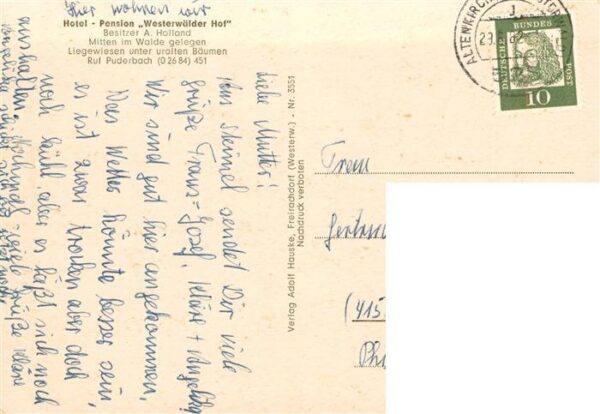 hier wohnen wir
Hotel - Pension „Westerwälder Hof"
Besitzer A. Holland
Mitten im Walde gelegen
Liegewiesen unter uralten Bäumen
Ruf Puderbach (0 26 84) 451
Liebe Mutter!
Aus Steimel sendet Dir viele
Grüße Franz-Josef, Kläre + Angelika
Wir sind gut hier angekommen,
Das Wetter könnte besser sein,
es ist zwar trocken aber doch
noch kühl, aber es läßt sich noch
aushalten. Nochmals viele Grüße Kläre
Verlag Adolf Hauske, Freirachdorf (Westerw.) - Nr. 3551
Nachdruck verboten
ALTENKIRCHEN
DEUTSCHE BUNDESPOST
10
Frau
(415